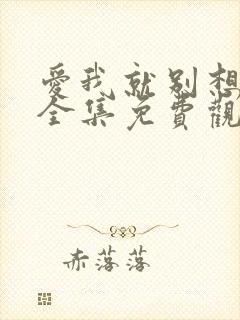 愛我就别想
全集免費觀
赤落落